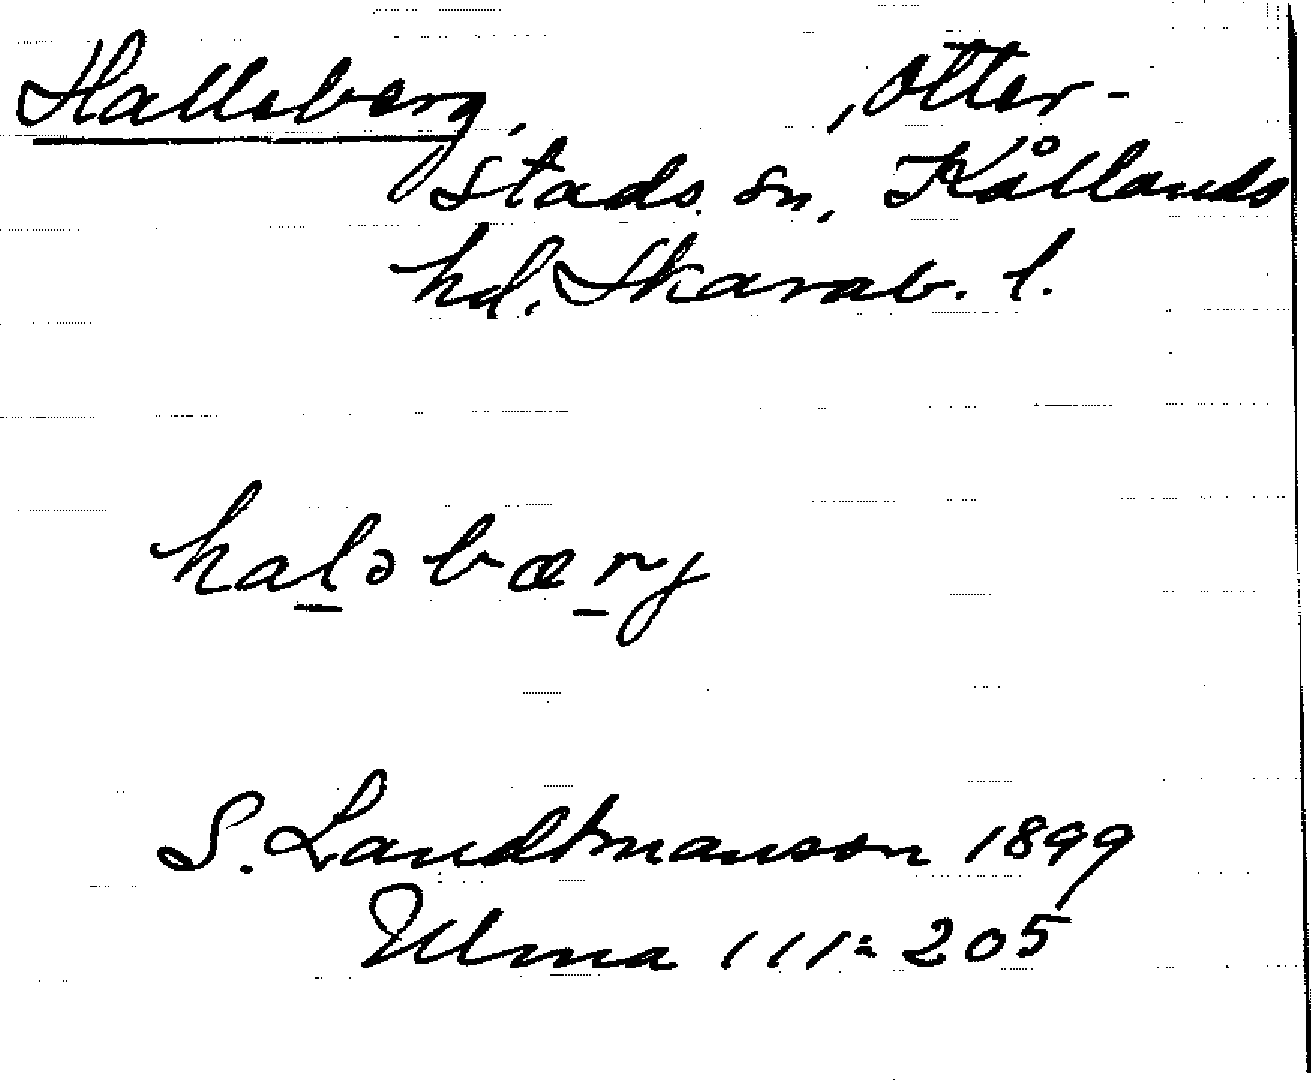 Halleberg, , Otter-
stads sn, Kållands
hd. Skarab. l.
haləbærg
S. Landtmanson 1899
Ulma 111:205